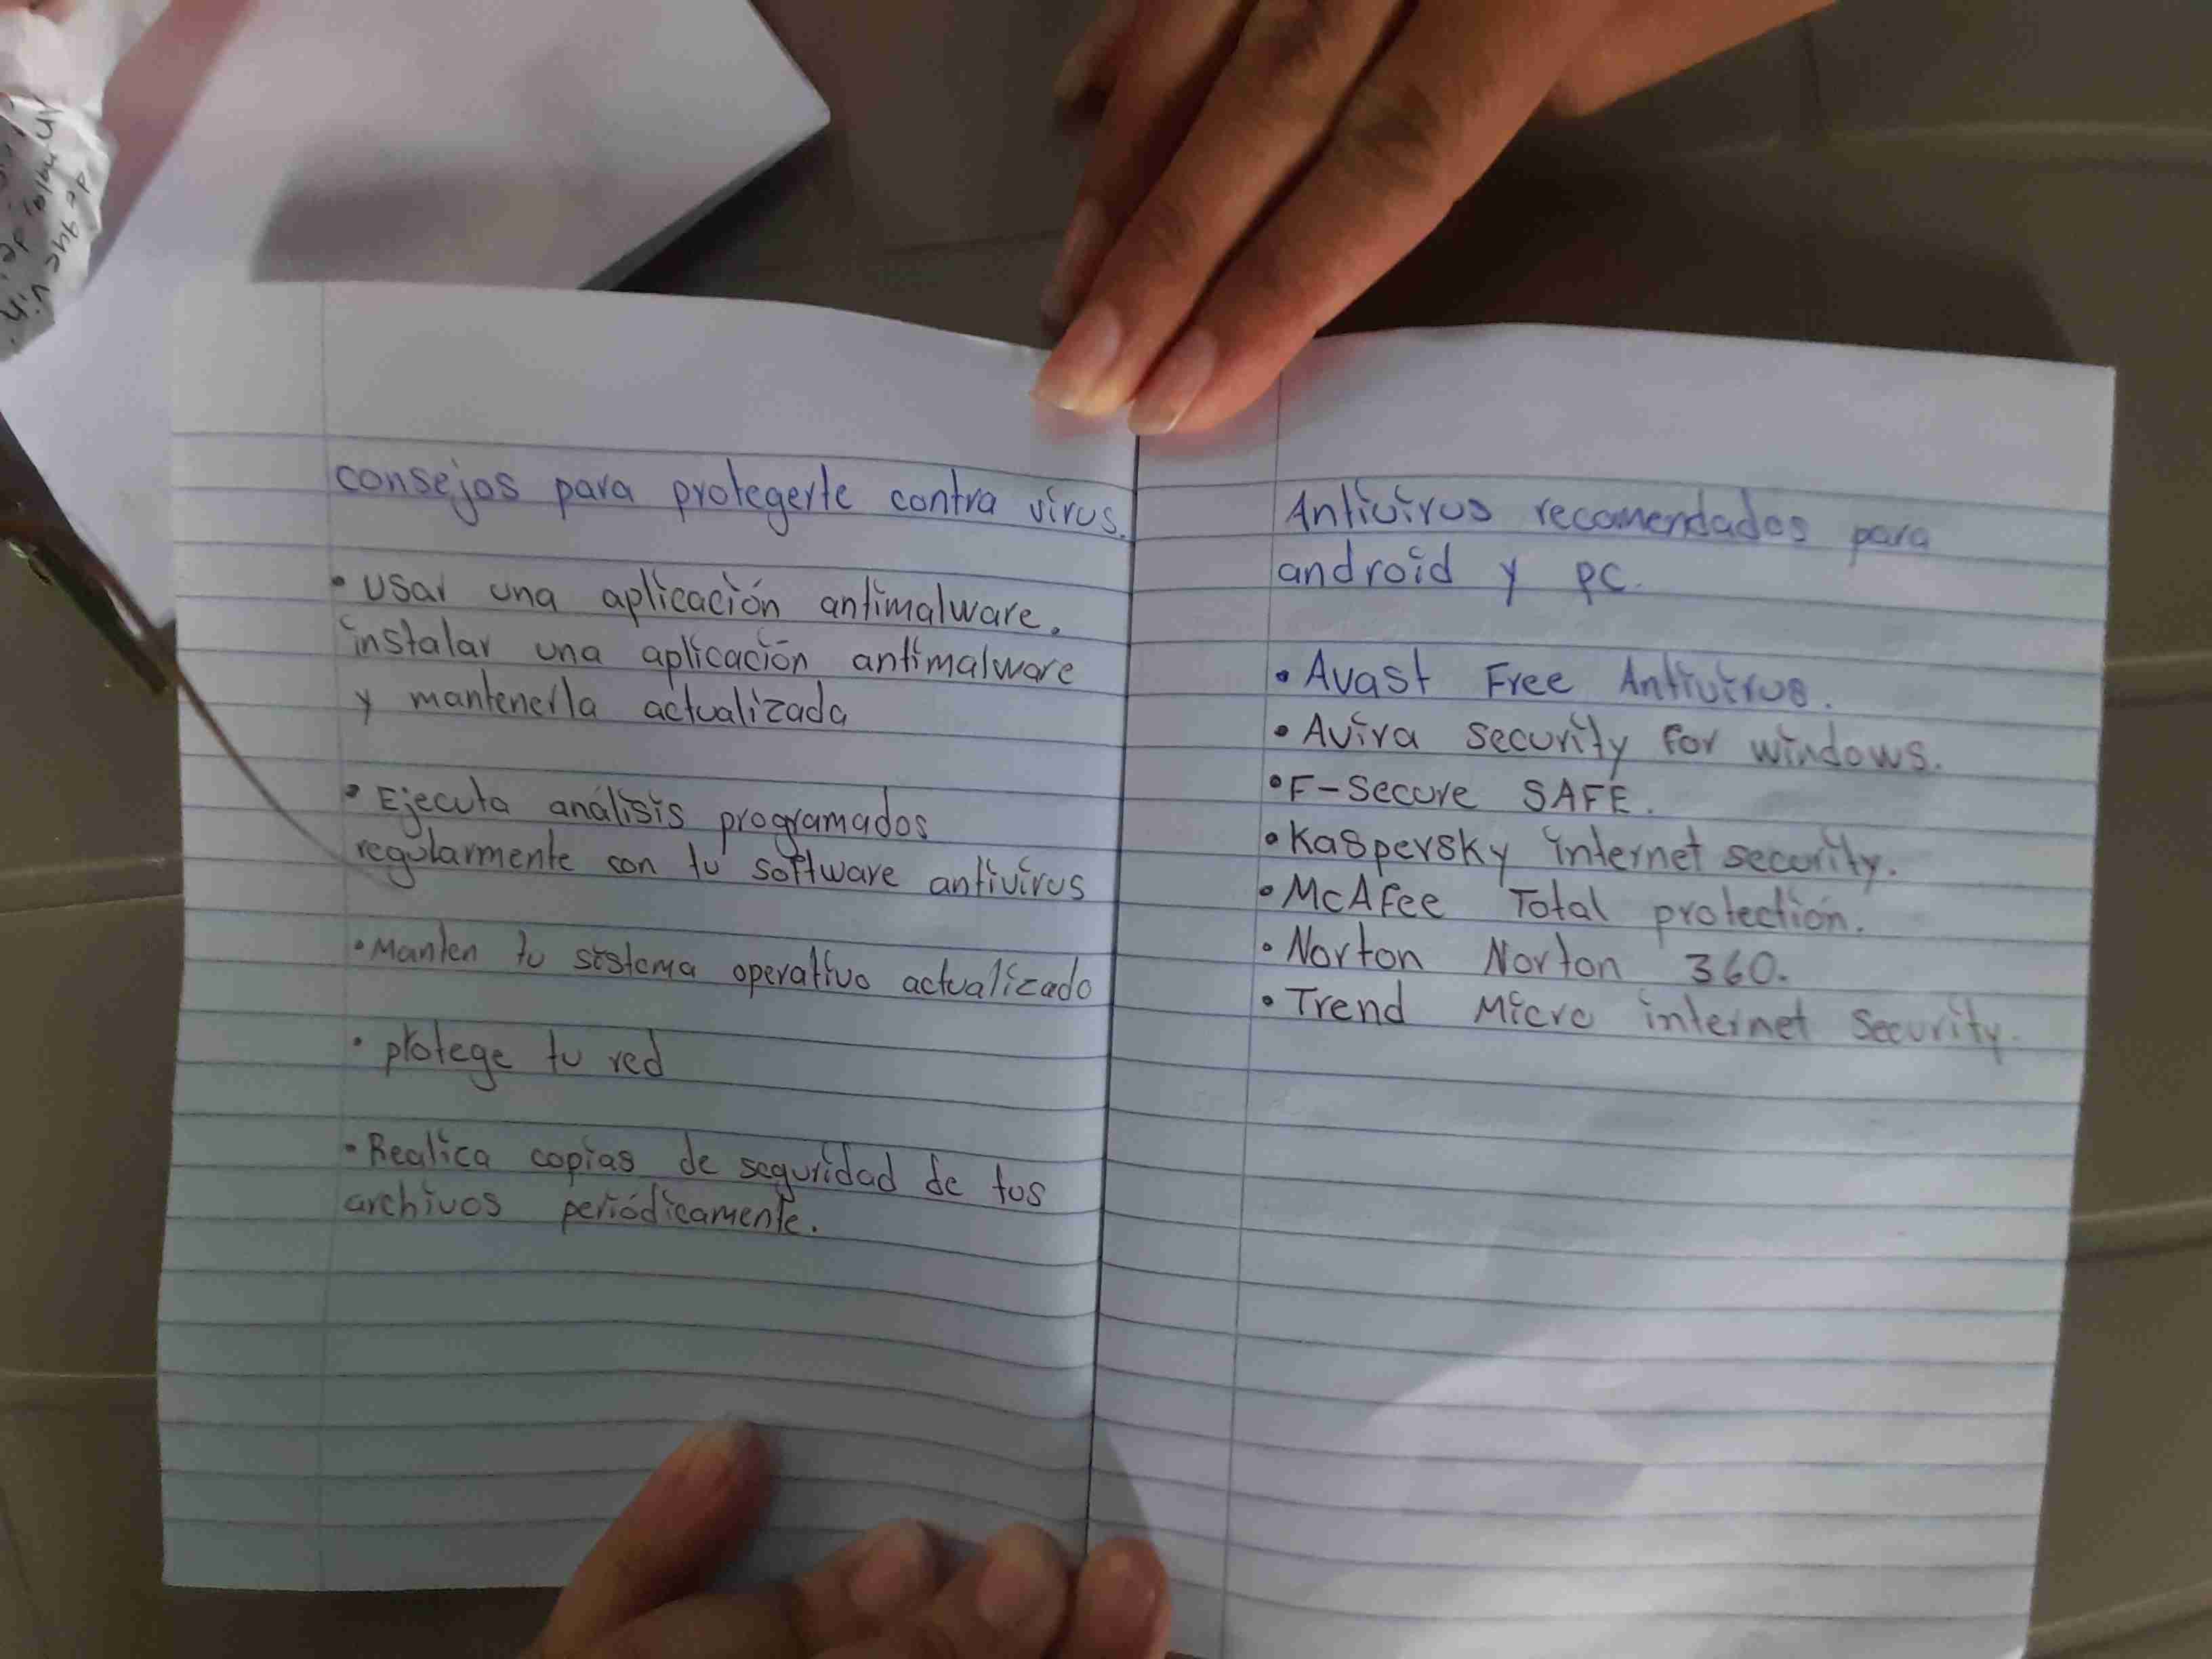 consejos para protegerte contra virus.
• usar una aplicación antimalware.
instalar una aplicación antimalware
y mantenerla actualizada
• Ejecuta análisis programados
regularmente con tu software antivirus
• Manten tu sistema operativo actualizado
• protege tu red
• Realica copias de seguridad de tus
archivos periódicamente.
Antivirus recomendados para
android y pc.
• Avast Free Antivirus.
• Avira security for windows.
• F-Secure SAFE.
• Kaspersky internet security.
• McAfee Total protection.
• Norton Norton 360.
• Trend Micro internet Security.